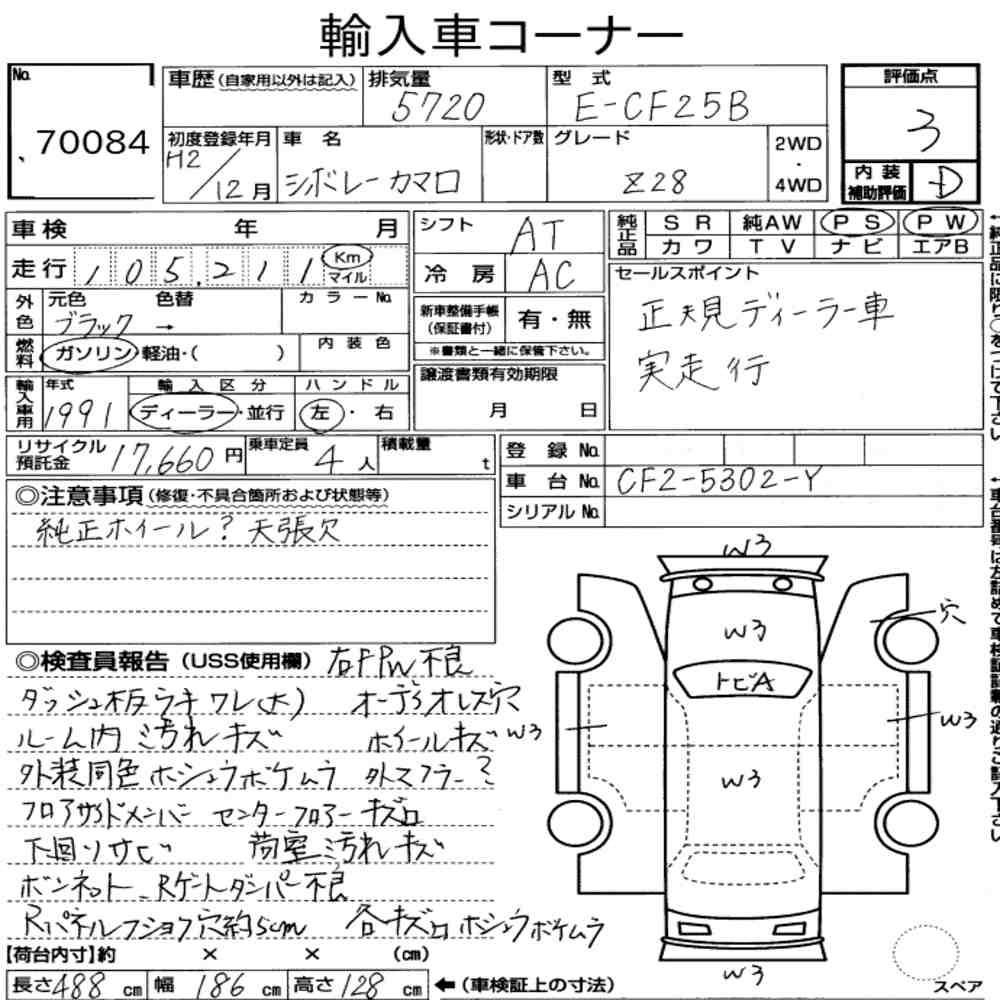 輸入車コーナー
No. 70084
車歴(自家用以外は記入)
排気量 5720
型式 E-CF25B
評価点 3
初度登録年月 H2/12月
車名 シボレーカマロ
形状・ドア数
グレード Z28
2WD・4WD
内装補助評価 D
車検 年 月
走行 105,211 Km マイル
外色 元色 ブラック 色替 → カラーNo.
燃料 ガソリン・軽油・( ) 内装色
輸入車用 年式 1991 輸入区分 ディーラー・並行 ハンドル 左・右
シフト AT
冷房 AC
新車整備手帳(保証書付) 有・無
※書類と一緒に保管下さい。
譲渡書類有効期限 月 日
純正品 SR 純AW PS PW
カワ TV ナビ エアB
セールスポイント
正規ディーラー車
実走行
リサイクル預託金 17,660円 乗車定員 4人 積載量 t
登録No.
車台No. CF2-5302-Y
シリアルNo.
◎注意事項(修復・不具合箇所および状態等)
純正ホイール? 天張欠
◎検査員報告(USS使用欄) 右FPW不良
ダッシュ板ウキワレ(大) オーディオレス穴
ルーム内汚れキズ ホイールキズ
外装同色ホシュウボケムラ 外マフラー?
フロアサイドメンバー センターフロアーキズ凹
下回りサビ 荷室汚れキズ
ボンネット、Rゲートダンパー不良
Rパネルフショク穴約5cm 各キズ凹ホシュウボケムラ
W3
W3
穴
トビA
W3
W3
W3
W3
【荷台内寸】約 × × (cm)
長さ488cm 幅186cm 高さ128cm ←(車検証上の寸法)
スペア
←純正品に限り○をつけて下さい
←車台番号は左詰めで車検証記載の通りご記入下さい